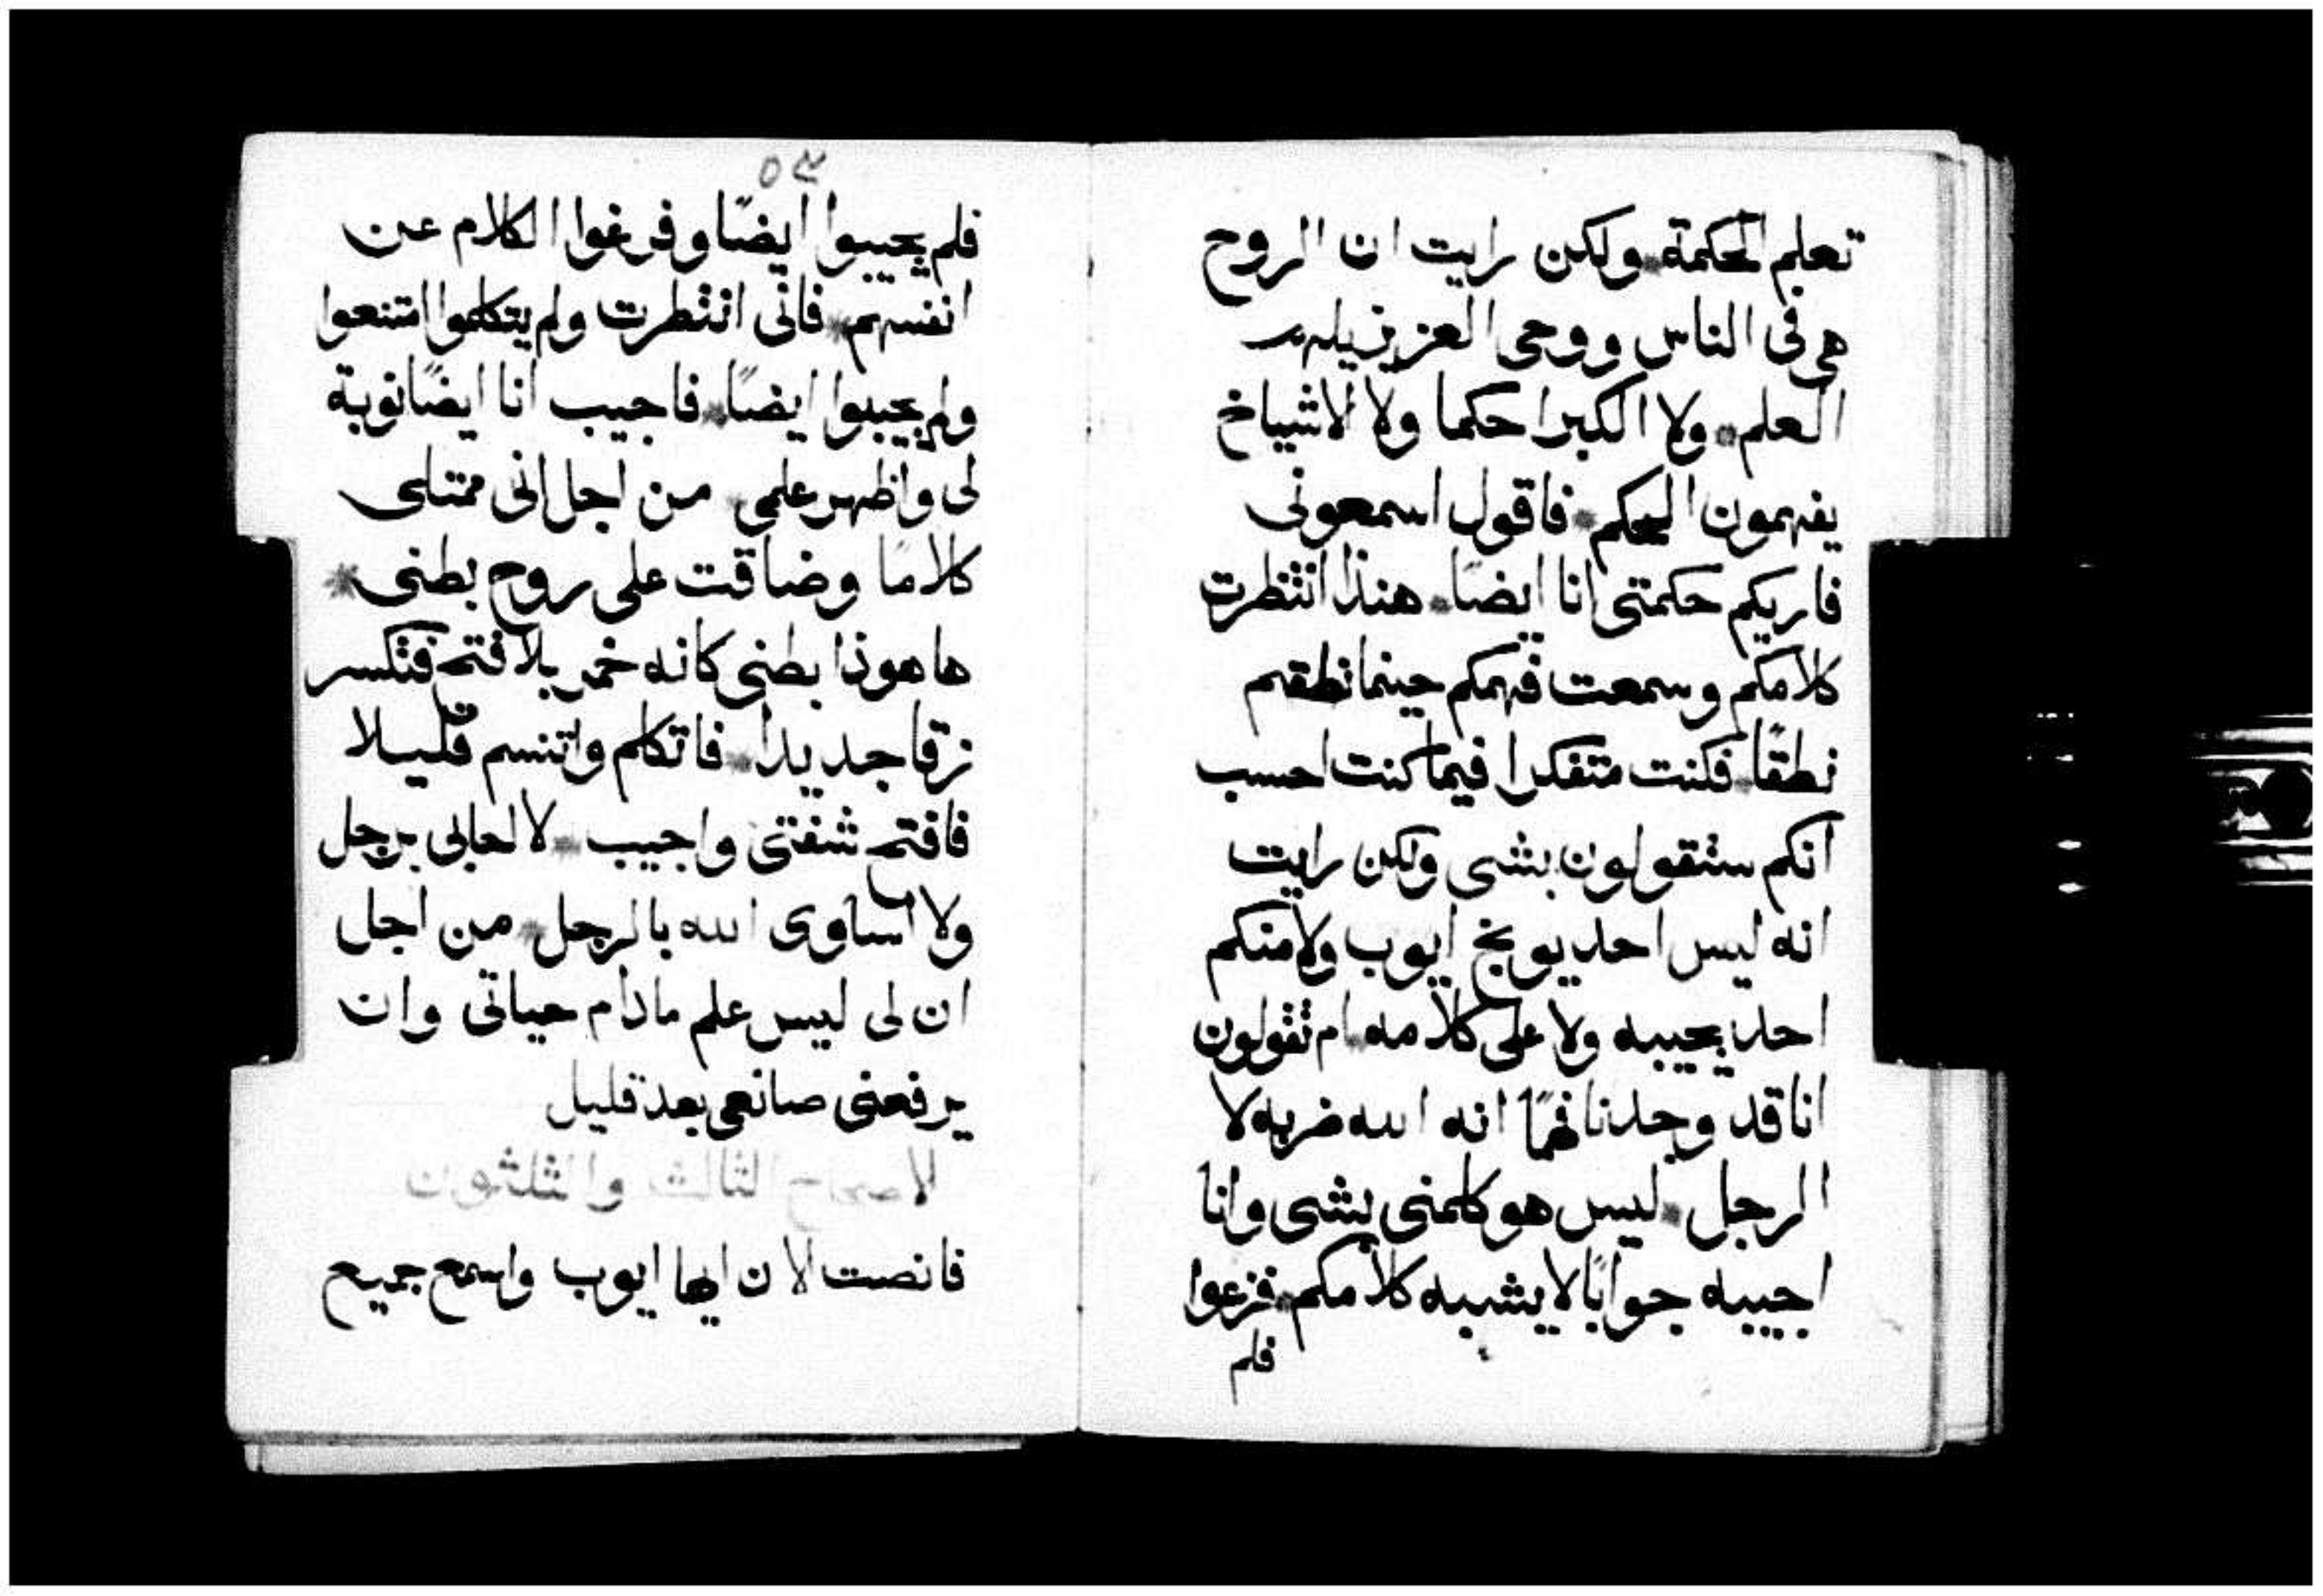 تعلم الحكمة ولكن رايت ان الروح
هي فى الناس وروحى العزيز يلهمه
العلم ولا الكبرا حكما ولا الاشياخ
يفهمون الحكم فاقول اسمعونى
فاريكم حكمتى انا ايضًا هنذا انتظرت
كلامكم وسمعت فهمكم حينما نطقتم
نطقًا فكنت متفكرا فيما كنت احسب
انكم ستقولون بشى ولكن رايت
انه ليس احد يوبخ ايوب ولا منكم
احد يجيبه ولا على كلامه ام تقولون
انا قد وجدنا فهمًا انه الله ضربه لا
الرجل ليس هو كلمنى بشى وانا
اجيبه جوابًا لا يشبه كلامكم فزعوا
فلم
٥٣
فلم يجيبوا ايضًا وفرغوا الكلام عن
انفسهم فانى انتظرت ولم يتكلموا امتنعوا
ولم يجيبوا ايضًا فاجيب انا ايضًا نوبة
لى واظهر علمى من اجل انى ممتلى
كلامًا وضاقت على روح بطنى
ها هوذا بطنى كانه خمر بلا فتح فتكسر
زقا جديدا فاتكلم واتنسم قليلا
فافتح شفتى واجيب لا احابى برجل
ولا اساوى الله بالرجل من اجل
ان لى ليس علم مادام حياتى وان
يرفعنى صانعى بعد قليل
الاصحاح الثالث والثلثون
فانصت الان ايها ايوب واسمع جميع